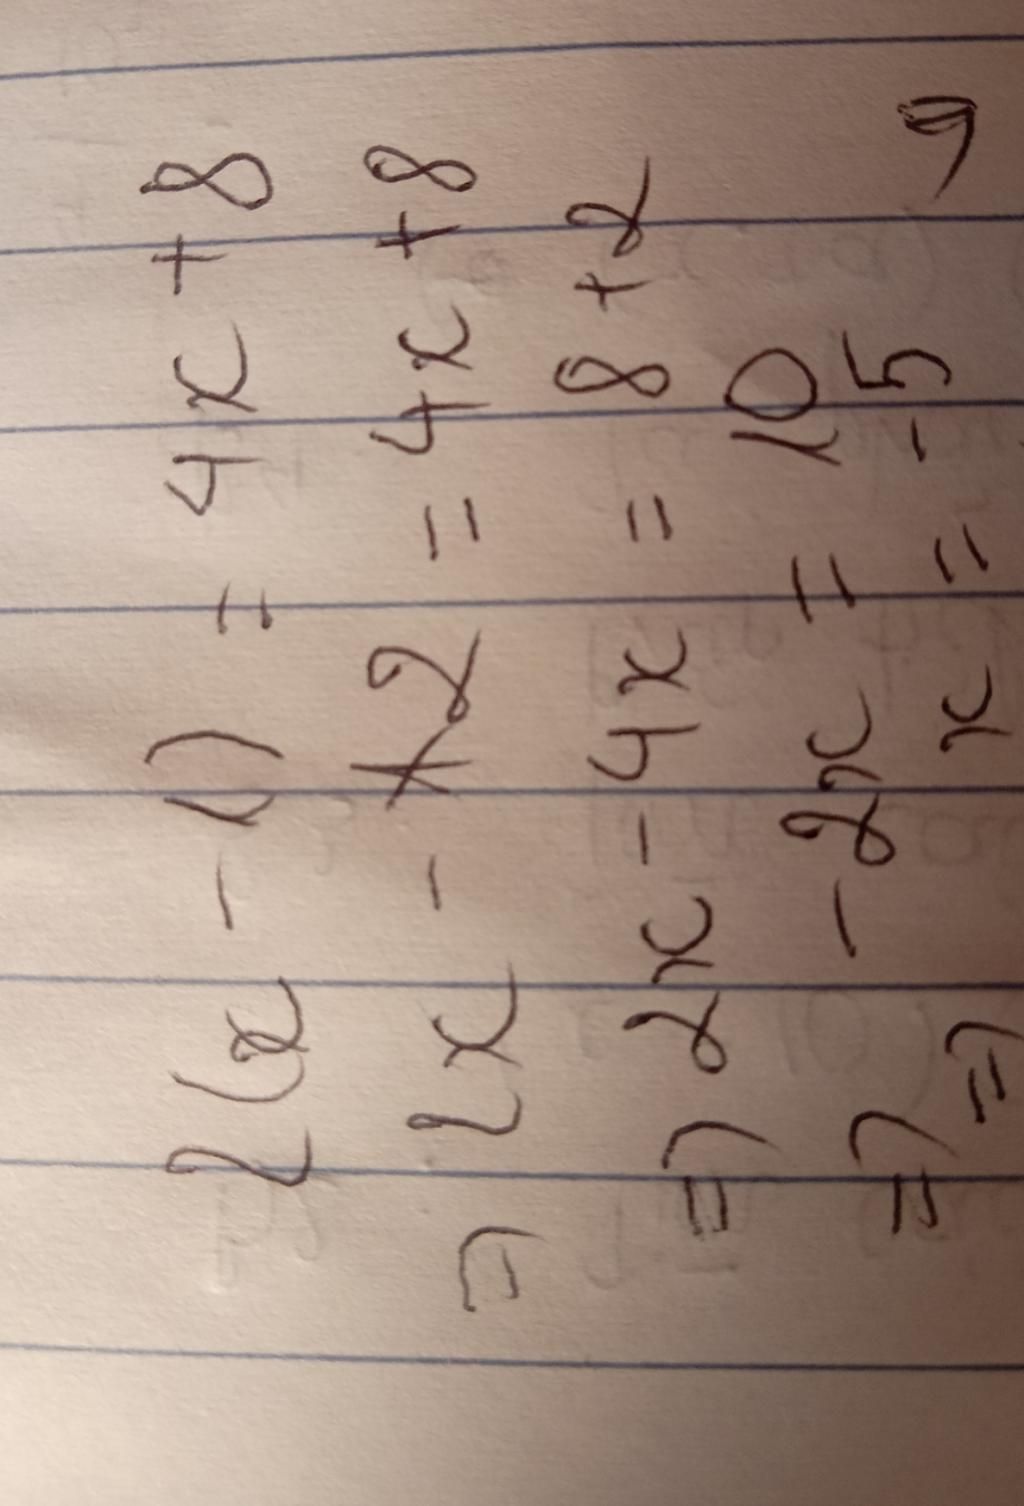 2(x - 1) = 4x + 8
=> 2x - 2 = 4x + 8
=> 2x - 4x = 8 + 2
=> - 2x = 10
=> x = - 5
9